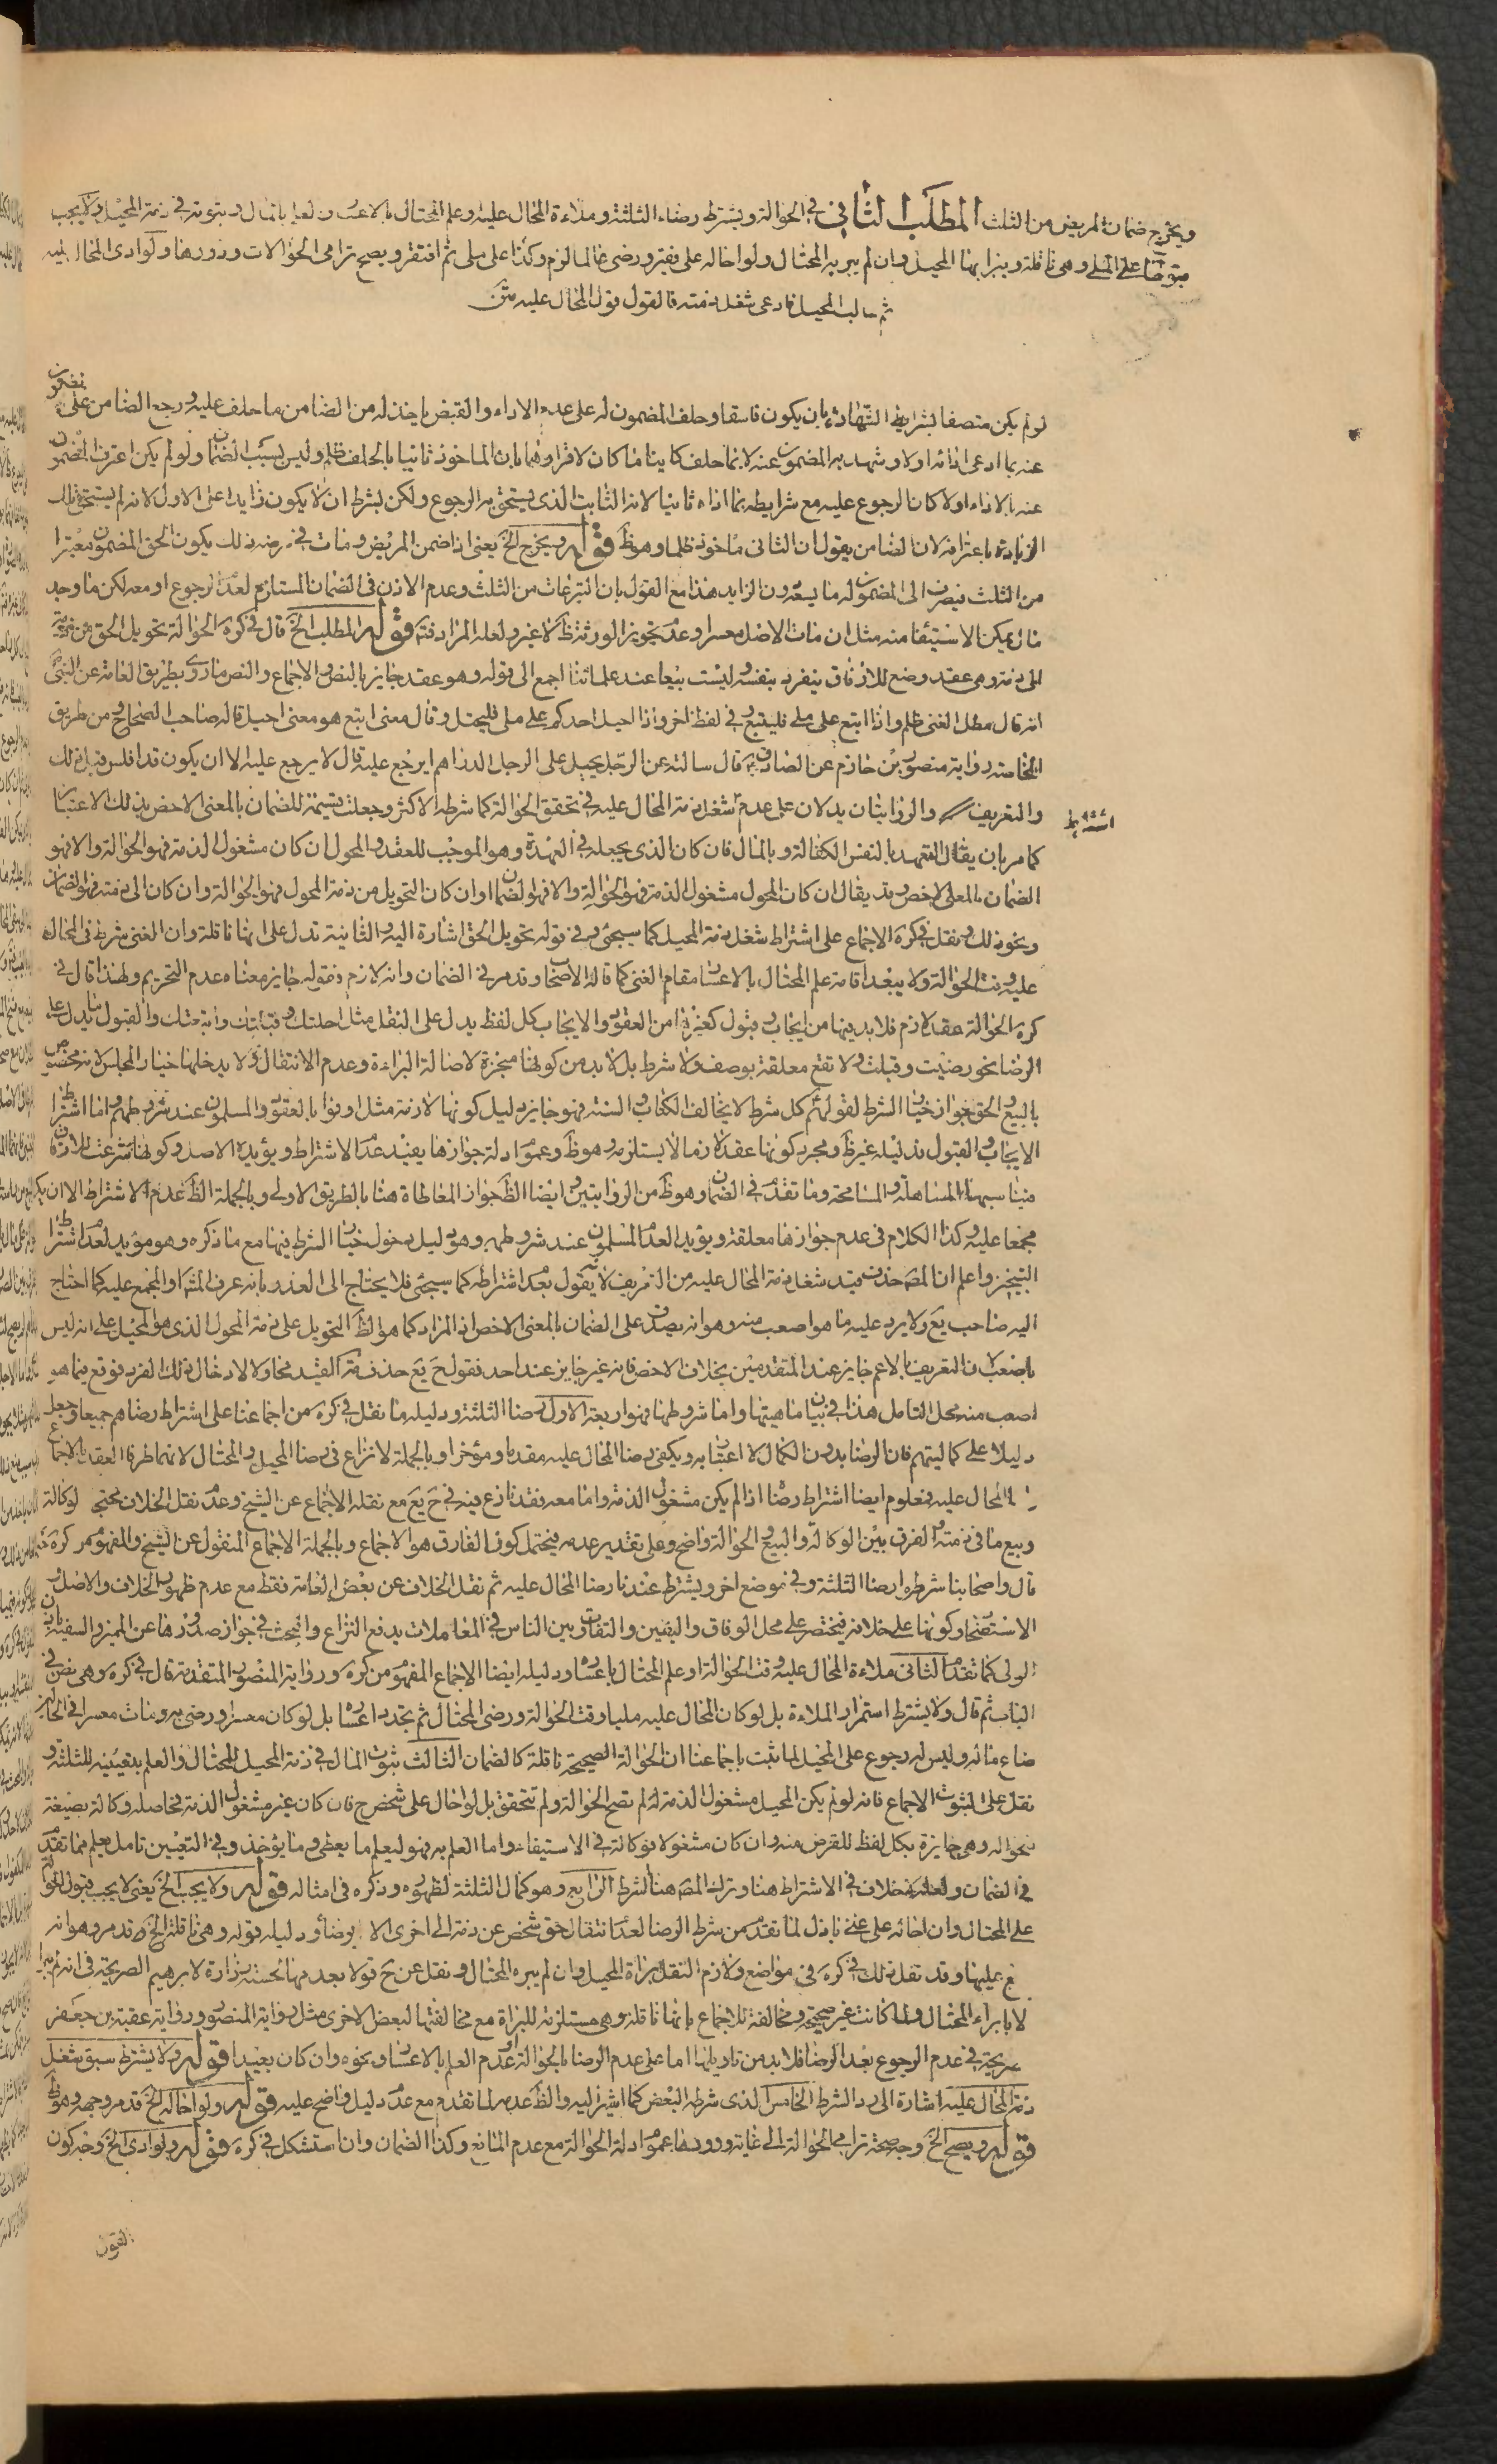 ويخرج ضمان المريض من الثلث المطلب الثاني في الحوالة ويشترط رضاء الثلثة وملاءة المحال عليه وعلم المحتال بالاعسار والعلم بالمال وثبوته في ذمة المحيل ولا يجب
قبولها على الملي وهي ناقلة ويبرأ بها المحيل وان لم يبره المحتال ولو احاله على فقير ورضي عالما لزم وكذا على ملي ثم افتقر ويصح ترامي الحوالات ودورها ولو ادى المحال عليه
ثم طالب المحيل فادعى شغل ذمته فالقول قول المحال عليه متن
لو لم يكن متصفا بشرايط الشهادة بان يكون فاسقا وحلف المضمون له على عدم الاداء والقبض ياخذ له من الضامن ما حلف عليه ورجع الضامن على المضمون
عنه بما ادعى اداءه اولا وشهد به المضمون عنه لا بما حلف كاينا ما كان لاقراره بان الماخوذ ثانيا بالحلف ظلم وليس بسبب الضمان ولو لم يكن اعترف المضمون
عنه بالاداء اولا كان الرجوع عليه مع شرايطه بما اداه ثانيا لانه الثابت الذي يستحق به الرجوع ولكن بشرط ان لا يكون زايدا على الاول لانه لم يستحق تلك
الزيادة باعترافه لان الضامن يقول ان الثاني ماخوذ ظلما وهو ظ قوله ويخرج الخ يعني اذا ضمن المريض ومات في مرضه ذلك يكون الحق المضمون معتبرا
من الثلث فيصرف الى المضمون له ما يسعه دون الزايد هذا مع القول بان التبرعات من الثلث وعدم الاذن في الضمان المستلزم لعدم الرجوع او معه لكن ما وجد
مال يمكن الاستيفا منه مثل ان مات الاصل معسرا وعدم تجويز الورثة ظ لا غير ولعله المراد فته قوله المطلب الخ قال في كره الحوالة تحويل الحق من ذمة
الى ذمة وهي عقد وضع للارفاق ينفرد بنفسه وليست بيعا عند علمائنا اجمع الى قوله وهو عقد جايز بالنص والاجماع والنص ما روى بطريق العامة عن النبي
انه قال مطل الغني ظلم واذا اتبع على ملي فليتبع وفي لفظ اخر واذا احيل احدكم على ملي فليحتل وقال معنى اتبع هو معنى احيل قاله صاحب الصحاح ومن طريق
الخاصة رواية منصور بن حازم عن الصادق قال سالته عن الرجل يحيل على الرجل الدراهم ايرجع عليه قال لا يرجع عليه الا ان يكون قد افلس قبل ذلك
والتعريف والروايتان يدلان على عدم اشتراط شغل ذمة المحال عليه في تحقق الحوالة كما شرطه الاكثر وجعلت قسيمة للضمان بالمعنى الاخص بذلك الاعتبار
كما مر بان يقال التعهد بالنفس الكفالة وبالمال فان كان الذي يجعله في العهدة وهو الموجب للعقد والمحول ان كان مشغول الذمة فهو الحوالة والا فهو
الضمان بالمعنى الاخص وقد يقال ان كان المحول مشغول الذمة فهو الحوالة والا فهو الضمان او ان كان التحويل من ذمة المحول فهو الحوالة وان كان الى ذمته فهو الضمان
ونحو ذلك ونقل في كره الاجماع على اشتراط شغل ذمة المحيل كما سيجئ وفي قوله تحويل الحق اشارة اليه والثانية تدل على انها ناقلة وان الغنى شرط في المحال
عليه وقت الحوالة ولا يبعد اقامة علم المحتال بالاعسار مقام الغنى كما قاله الاصحاب وقد مر في الضمان وانه لازم فقوله جايز معناه عدم التحريم ولهذا قال في
كره الحوالة عقد لازم فلا بد فيها من ايجاب وقبول كغيرها من العقود والايجاب كل لفظ يدل على النقل مثل احلتك وقبلتك واتبعتك والقبول ما يدل على
الرضا نحو رضيت وقبلت ولا تقع معلقة بوصف ولا شرط بل لا بد من كونها منجزة لاصالة البراءة وعدم الانتقال ولا يدخلها خيار المجلس لانه مخصوص
بالبيع والحق جواز خيار الشرط لقولهم كل شرط لا يخالف الكتاب والسنة فهو جايز ودليل كونها لازمة مثل اوفوا بالعقود والمسلمون عند شروطهم واما اشتراط
الايجاب والقبول فدليله غير ظ ومجرد كونها عقدا لازما لا يستلزمه وهو ظ وعموم ادلة جوازها يفيد عدم الاشتراط ويؤيده الاصل وكونها شرعت للارفاق
فيناسبها المساهلة والمسامحة وما تقدم في الضمان وهو ظ من الروايتين وايضا الظ جواز المعاطاة هنا بالطريق الاولى وبالجملة الظ عدم الاشتراط الا ان يكون
مجمعا عليه وكذا الكلام في عدم جوازها معلقة ويؤيد العدم المسلمون عند شروطهم وهو دليل دخول خيار الشرط فيها مع ما ذكره وهو مؤيد لعدم اشتراط
التنجيز واعلم ان المص حذف قيد شغل ذمة المحال عليه من التعريف لانه يقول بعدم اشتراطه كما سيجئ فلا يحتاج الى العذر بانه عرف المشهور والمجمع عليه كما احتاج
اليه صاحب يع ولا يرد عليه ما هو اصعب منه وهو انه يصدق على الضمان بالمعنى الاخص اذ المراد كما هو الظ التحويل على ذمة المحول الذي هو المحيل على انه ليس
باصعب لان التعريف بالاعم جايز عند المتقدمين بخلاف الاخص فانه غير جايز عند احد فقول ح يع حذف القيد محاولا لادخال ذلك الفرد فوقع فيما هو
اصعب منه محل التامل هذا في بيان ماهيتها واما شروطها فهو اربعة الاول رضا الثلثة ودليله ما نقل في كره من اجماعنا على اشتراط رضاهم جميعا وجعله
دليلا على كماليتهم فان الرضا بدون الكمال لا اعتبار به ويكفي رضا المحال عليه مقدما ومؤخرا وبالجملة لا نزاع في رضا المحيل والمحتال لانهما طرفا العقد بالاجماع
المحال عليه فمعلوم ايضا اشتراط رضاه اذا لم يكن مشغول الذمة واما معه فقد نازع فيه في ح يع مع نقله الاجماع عن الشيخ وعدم نقل الخلاف محتج لوكالة
وبيع ما في ذمته والفرق بين الوكالة والبيع والحوالة واضح وعلى تقدير عدمه فيحتمل كون الفارق هو الاجماع وبالجملة الاجماع المنقول عن الشيخ والمفهوم من كره
قال واصحابنا شرطوا رضا الثلثة وفي موضع اخر ويشترط عندنا رضا المحال عليه ثم نقل الخلاف عن بعض العامة فقط مع عدم ظهور الخلاف والاصل
الاستصحاب وكونها على خلافه فيختصر على محل الوفاق واليقين والتفاوت بين الناس في المعاملات يدفع النزاع والبحث في جواز صدورها عن المميز والسفيه باذن
الولي كما تقدم الثاني ملاءة المحال عليه وقت الحوالة او علم المحتال باعساره ودليله ايضا الاجماع المفهوم من كره ورواية المنصور المتقدمة قال في كره وهي نص في
الباب ثم قال ولا يشترط استمرار الملاءة بل لو كان المحال عليه مليا وقت الحوالة ورضي المحتال ثم تجدد اعساره بل لو كان معسرا ورضي به ومات معسرا في الحال
ضاع ماله وليس له رجوع على المحيل لما ثبت باجماعنا ان الحوالة الصحيحة ناقلة كالضمان الثالث ثبوت المال في ذمة المحيل للمحتال والعلم بتعيينه للثلثة و
نقل على الثبوت الاجماع فانه لو لم يكن المحيل مشغول الذمة له لم تصح الحوالة ولم تتحقق بل لو احال على شخص ح فان كان غير مشغول الذمة فحاصله وكالة بصيغة
حواله وهي جايزة بكل لفظ للقرض منه وان كان مشغولا فوكالة في الاستيفاء واما العلم به فهو ليعلم ما يعطى وما يؤخذ وفي التعيين تامل يعلم مما تقدم
في الضمان ولعله لا خلاف في الاشتراط هنا وترك المص هنا الشرط الرابع وهو كمال الثلثة لظهوره وذكره في امثاله قوله ولا يجب الخ يعني لا يجب قبول الحوالة
على المحتال وان احاله على غني باذل لما تقدم من شرط الرضا لعدم انتقال حق شخص عن ذمة الى اخرى الا برضاه ودليله قوله وهي ناقلة الخ قد مر وهو انه
ع عليها وقد نقل ذلك في كره في مواضع ولازم النقل براءة المحيل وان لم يبره المحتال ونقل عن خ قولا بعدمها لحسنة زرارة لابرهيم الصريحة في انه لم يبرا
الا بابراء المحتال ولما كانت غير صحيحة ومخالفة للاجماع بانها ناقلة وهي مستلزمة للبراءة مع مخالفتها لبعض الاخرى مثل رواية المنصور ورواية عقبة بن جعفر
صريحة في عدم الرجوع بعد الرضا فلا بد من تاويلها اما على عدم الرضا بالحوالة او عدم العلم بالاعسار ونحوه وان كان بعيدا قوله ولا يشترط سبق شغل
ذمة المحال عليه اشارة الى رد الشرط الخامس الذي شرطه البعض كما اشير اليه والظ عدمه لما تقدم مع عدم دليل واضح عليه قوله ولو احاله الخ قد مر وجهه وهو ظ
قوله ويصح الخ وجه صحة ترامي الحوالة الى غاية ودورها عموم ادلة الحوالة مع عدم المانع وكذا الضمان وان استشكل في كره قوله ولو ادى الخ وجه كون
القول